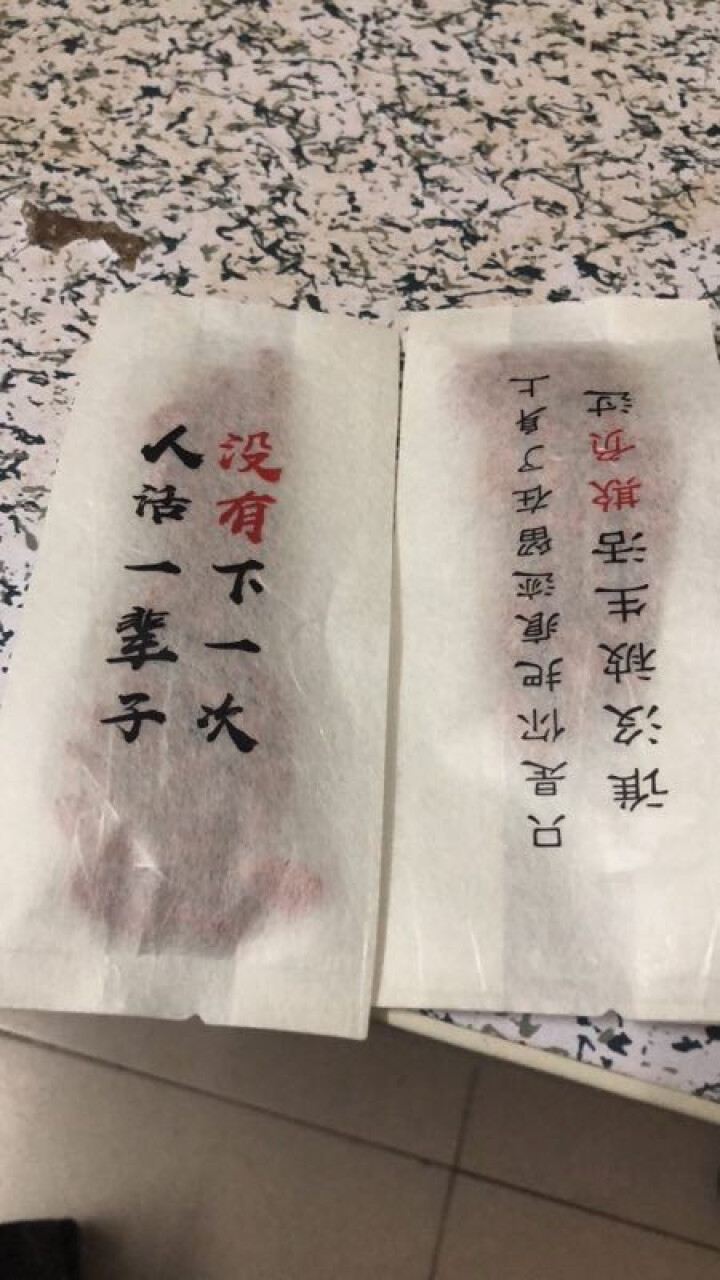 人活一辈子
没有下一次
谁没被生活欺负过
只是你把痕迹留在了身上